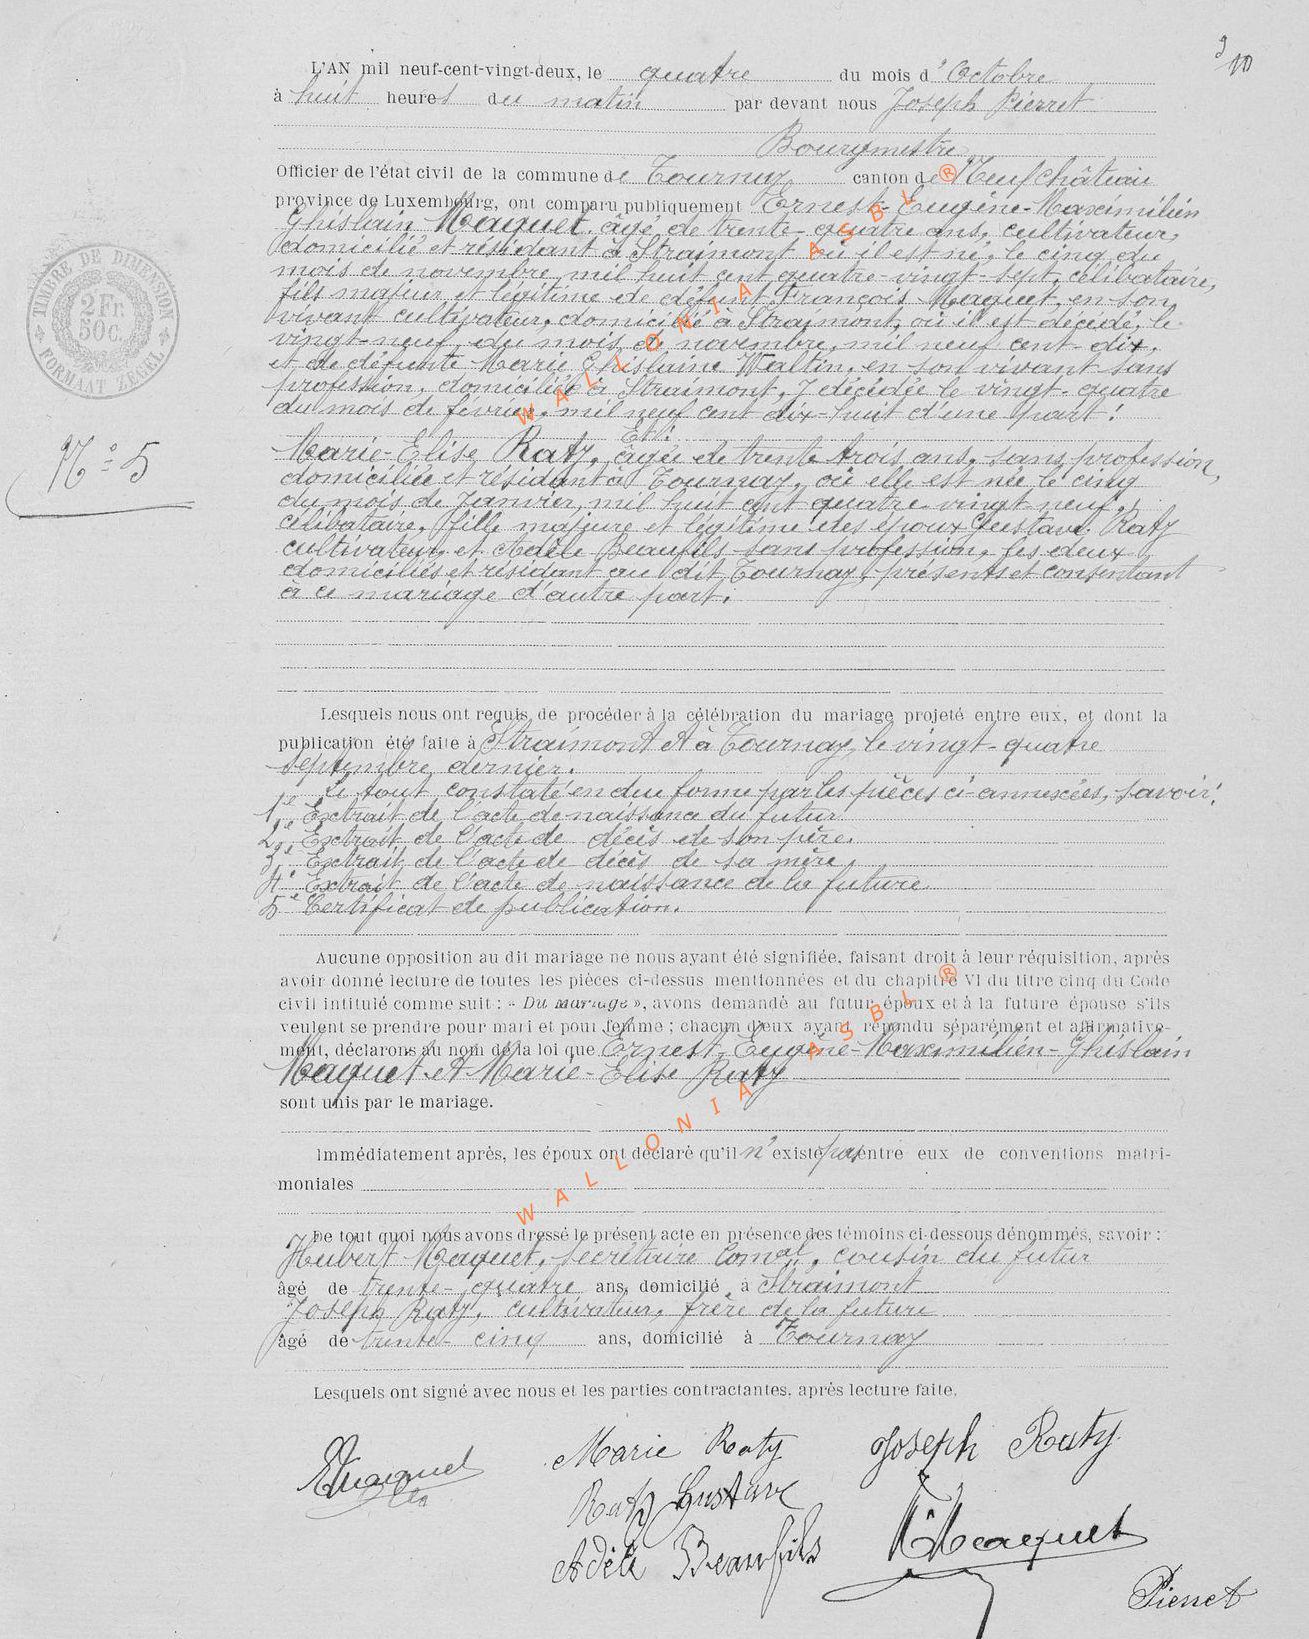 9/10
L'AN mil neuf-cent-vingt-deux, le quatre du mois d'Octobre
à huit heures du matin par devant nous Joseph Pierret
Bourgmestre
Officier de l'état civil de la commune de Tournay canton de Neufchâteau
province de Luxembourg, ont comparu publiquement Ernest-Eugène-Maximilien
Ghislain Maquet, âgé de trente-quatre ans, cultivateur,
domicilié et résidant à Straimont où il est né, le cinq du
mois de novembre mil huit cent quatre-vingt-sept, célibataire,
fils majeur et légitime de défunt François Maquet, en son
vivant cultivateur, domicilié à Straimont, où il est décédé, le
vingt-neuf, du mois de novembre, mil neuf cent dix,
et de défunte Marie Ghislaine Waltin, en son vivant sans
profession, domiciliée à Straimont, y décédée le vingt-quatre
du mois de février, mil neuf cent dix-huit d'une part!
Et:
N° 5
Marie-Elise Raty, âgée de trente trois ans, sans profession,
domiciliée et résidant à Tournay, où elle est née le cinq
du mois de Janvier, mil huit cent quatre vingt neuf,
célibataire, fille majeure et légitime des époux Gustave Raty
cultivateur, et Adèle Beaufils sans profession, les deux
domiciliés et résidant au dit Tournay, présents et consentant
à ce mariage d'autre part.
Lesquels nous ont requis de procéder à la célébration du mariage projeté entre eux, et dont la
publication été faite à Straimont et à Tournay, le vingt-quatre
septembre dernier.
Le tout constaté en due forme par les pièces ci-annexées, savoir:
1e Extrait de l'acte de naissance du futur
2e Extrait de l'acte de décès de son père.
3e Extrait de l'acte de décès de sa mère.
4e Extrait de l'acte de naissance de la future.
5e Certificat de publication.
Aucune opposition au dit mariage ne nous ayant été signifiée, faisant droit à leur réquisition, après
avoir donné lecture de toutes les pièces ci-dessus mentionnées et du chapitre VI du titre cinq du Code
civil intitulé comme suit : « Du Mariage », avons demandé au futur époux et à la future épouse s'ils
veulent se prendre pour mari et pour femme ; chacun d'eux ayant répondu séparément et affirmative-
ment, déclarons au nom de la loi que Ernest-Eugène-Maximilien-Ghislain
Maquet et Marie-Elise Raty
sont unis par le mariage.
Immédiatement après, les époux ont déclaré qu'il n'existe pas entre eux de conventions matri-
moniales
De tout quoi nous avons dressé le présent acte en présence des témoins ci-dessous dénommés, savoir :
Hubert Maquet, secrétaire Comal, cousin du futur
âgé de trente-quatre ans, domicilié à Straimont
Joseph Raty, cultivateur, frère de la future
âgé de trente-cinq ans, domicilié à Tournay
Lesquels ont signé avec nous et les parties contractantes, après lecture faite.
Marie Raty Joseph Raty
EMaquet
Raty Gustave
Adèle Beaufils HMaquet
Pierret
TIMBRE DE DIMENSION
2 Fr.
50 C.
FORMAAT ZEGEL
WALLONIA ASBL ®
WALLONIA ASBL ®